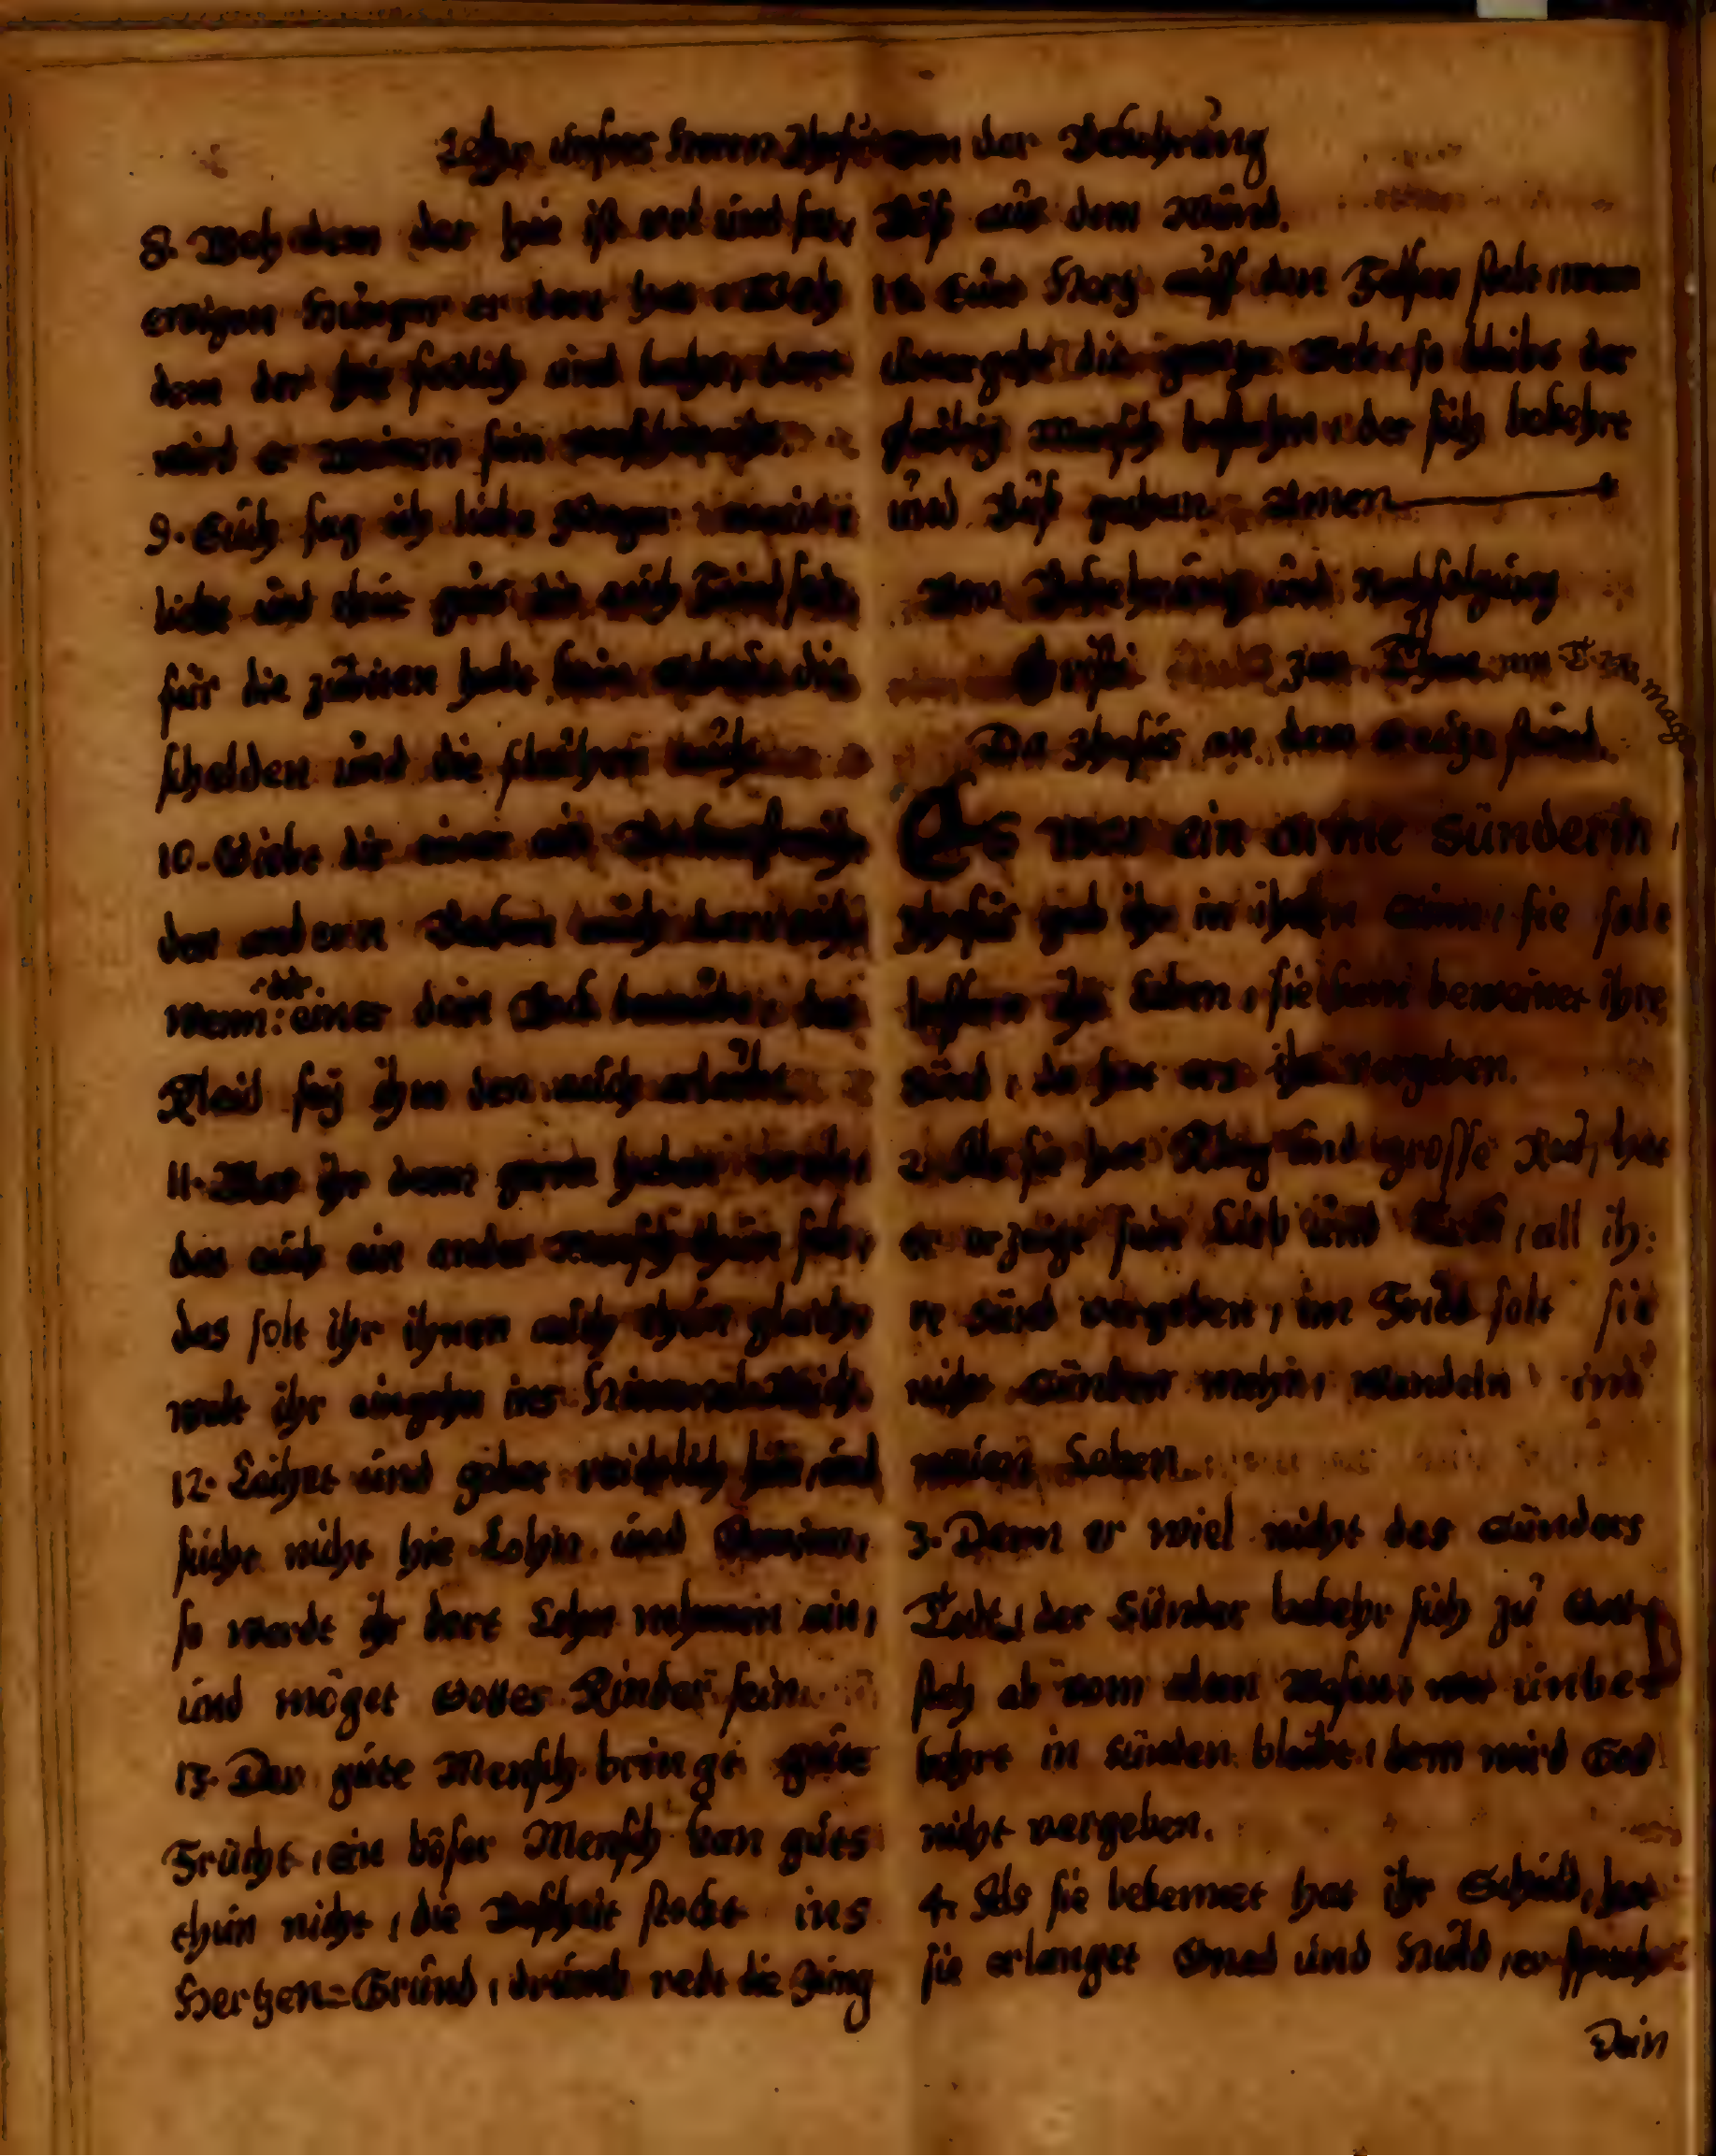 Lehr unsers Herren Jhesu von der Bekehrung
8. Weh dem der hie ist vol und sat,
ewigen Hunger er dort hat, Weh
dem der hie frölich und lacht, dort
wird er weinen sein
9. Euch sag ich liebe Jünger
liebt und thut guts die euch Feind seit,
für die zu bitten habt kein die
schelden und die fluchen euch
10. Giebt dir einer ein Backenstreich
den andern Backen auch
wenn dir einer dein Rock das
Kleid sey ihm den auch erlaubt
11. Was ihr dann gerne haben wolt,
das euch ein ander Mensch thun solt,
das solt ihr ihnen auch thun gleich,
wolt ihr eingehn ins Himmel-Reich.
12. Leihet und gebet reichlich hin, und
sucht nicht hie Lohn und Gewinn,
so werdt ihr dort Lohn nehmen ein,
und möget Gottes Kinder sein.
13. Der gute Mensch bringt gute
Frücht, ein böser Mensch kan guts
thun nicht, die Boßheit steckt ins
Hertzen=Grund, drumb redt die Zung
Böß aus dem Mund.
14. Eur Herz auff den Felsen stelt, wann
untergeht die gantze Welt, so bleibt der
gläubig Mensch bestehen, der sich bekehrt
und Buß gethan. Amen
Von Bekehrung und Nachfolgung
Christi zum Thon
Da Jhesus an dem Creutze stund.
Es war ein arme Sünderin,
Jhesus gab ihr in ihren Sinn, sie solt
bessern ihr Leben, sie bewainet ihre
Sünd, da hat ers ihr vergeben.
2. Als sie hat Klag und grosse Reu, hat
er erzeigt sein Lieb und Treu, all ih:
re Sünd vergeben, im Fried solt sie
nicht Sünden mehr, wandeln im
neuen Leben.
3. Denn er wiel nicht des Sünders
Todt, der Sünder bekehr sich zu Gott
steh ab vom alten Wesen, wer unbe-
kehrt in Sünden bleibt, dem wird Got
nicht vergeben.
4. Als sie bekennet hat ihr Schuld, hat
sie erlanget Gnad und Huld, er spricht
Dein